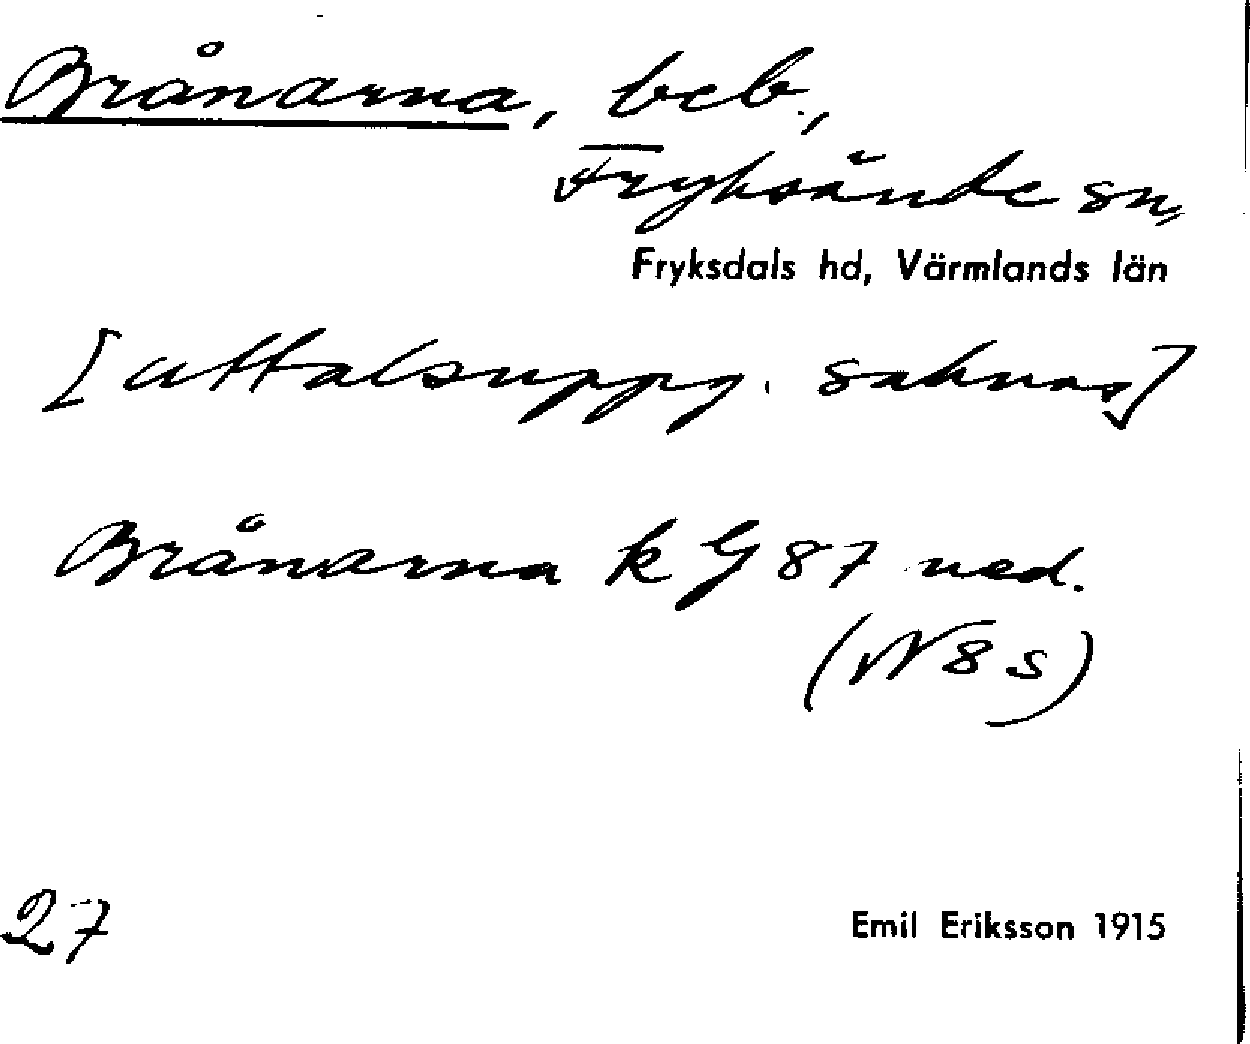 Brånarna, beb.,
Fryksände sn,
Fryksdals hd, Värmlands län
[uttalsuppg. saknas]
Brånarna k G 87 ned.
(N 8 s)
27
Emil Eriksson 1915